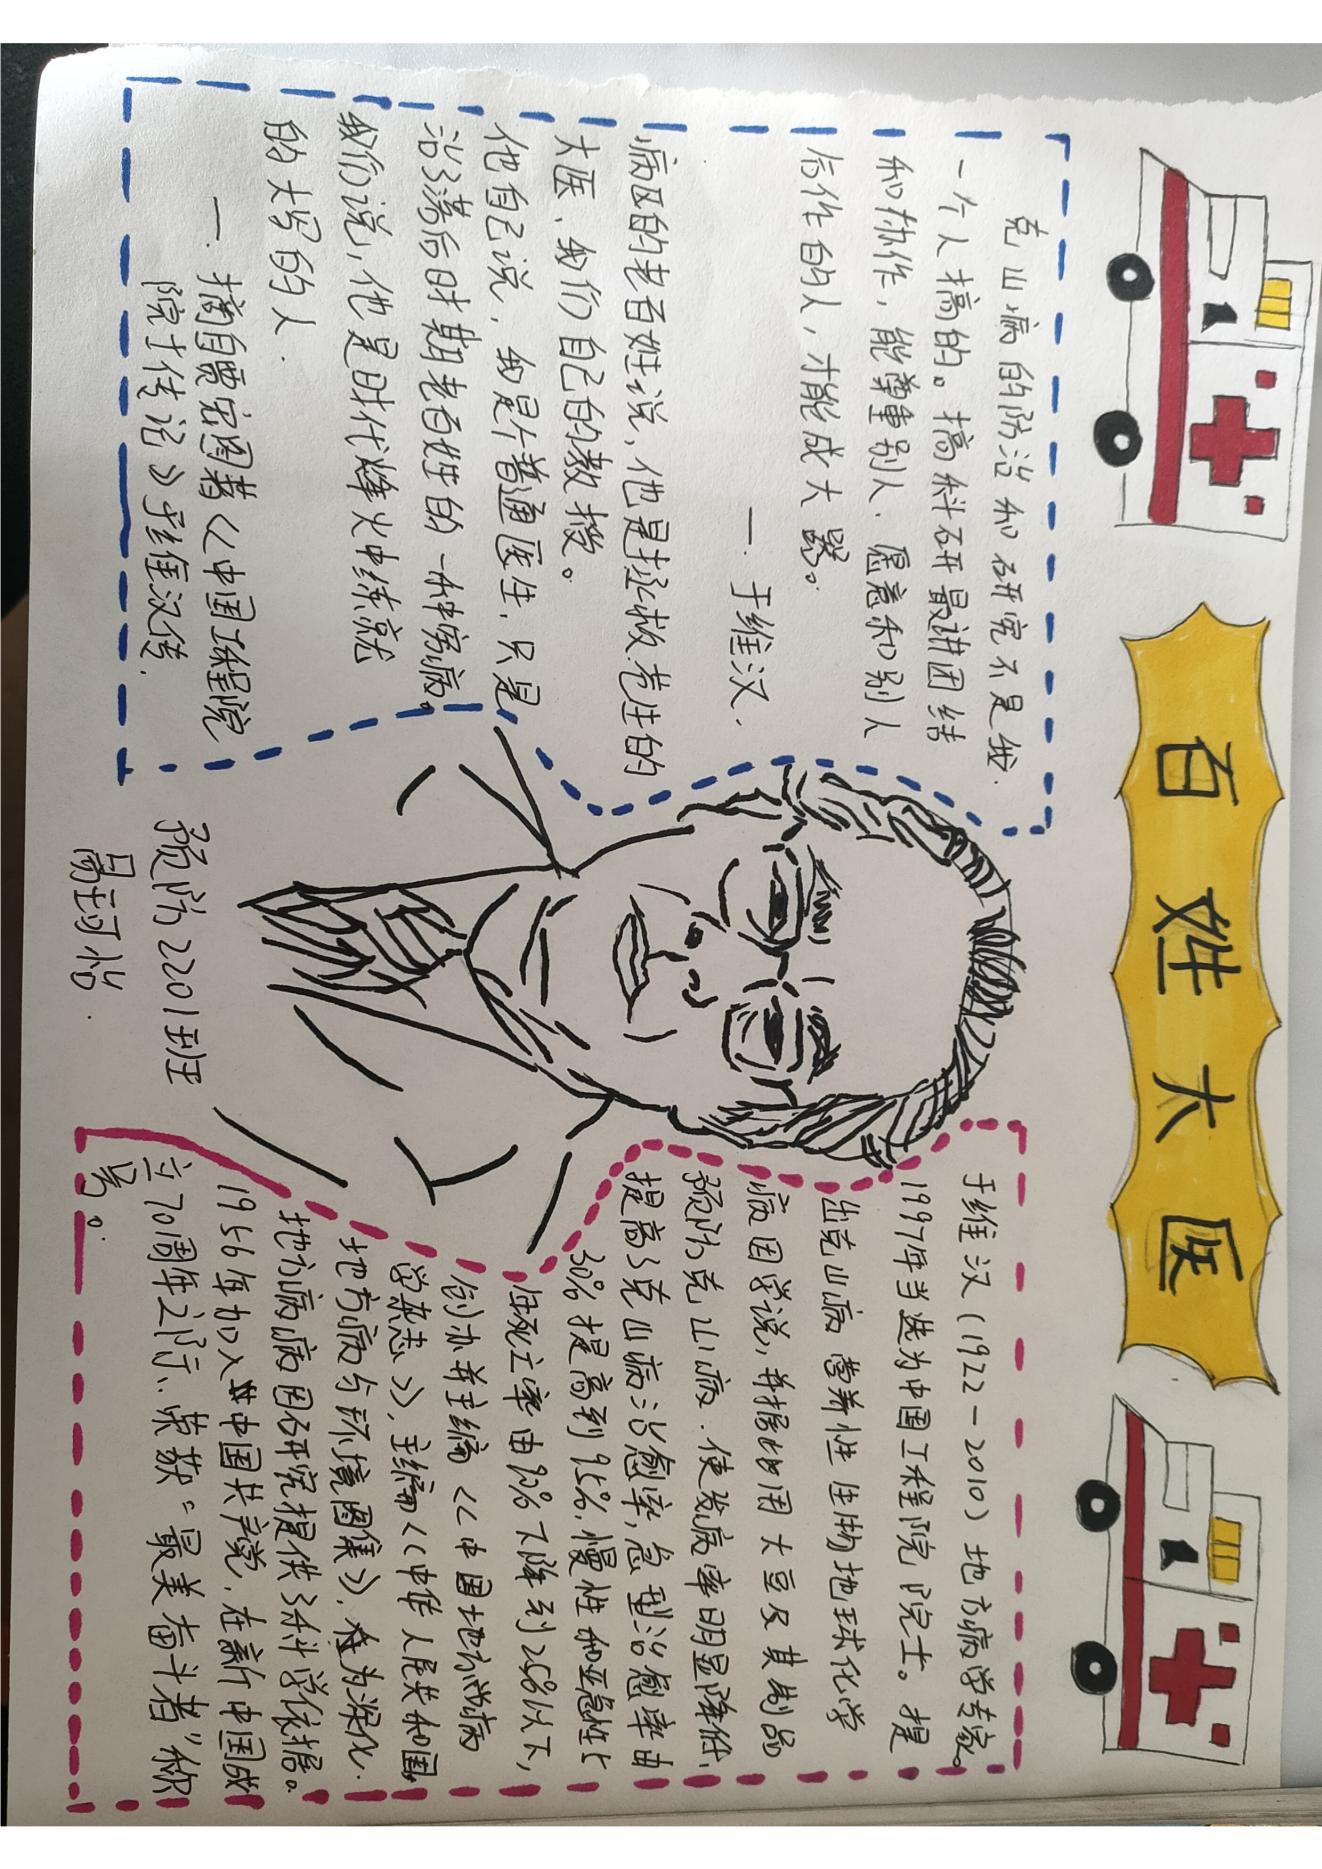 百姓大医
克山病的防治和研究不是我
一个人搞的。搞科研最讲团结
和协作，能尊重别人、愿意和别人
合作的人，才能成大器。
一 于维汉.
病区的老百姓说，他是拯救苍生的
大医、我们自己的教授。
他自己说，我是个普通医生，只是
治了落后时期老百姓的一种穷病。
我们说，他是时代烽火中练就
的大写的人.
一. 摘自贾宏图著《中国工程院
院士传记》于维汉传.
于维汉(1922-2010) 地方病学专家。
1997年当选为中国工程院院士。提
出克山病营养性生物地球化学
病因学说，并据此用大豆及其制品
预防克山病. 使发病率明显降低,
提高了克山病治愈率，急型治愈率由
30%提高到95%,慢性和亚急性
住死亡率由92%下降到25%以下，
创办并主编《中国地方病
学杂志》，主编《中华人民共和国
地方病与环境图集》，为深化
地方病病因研究提供了科学依据。
1956年加入中国共产党，在新中国成
立70周年之际、荣获“最美奋斗者”称
号。
预防2201班
周珂怡.